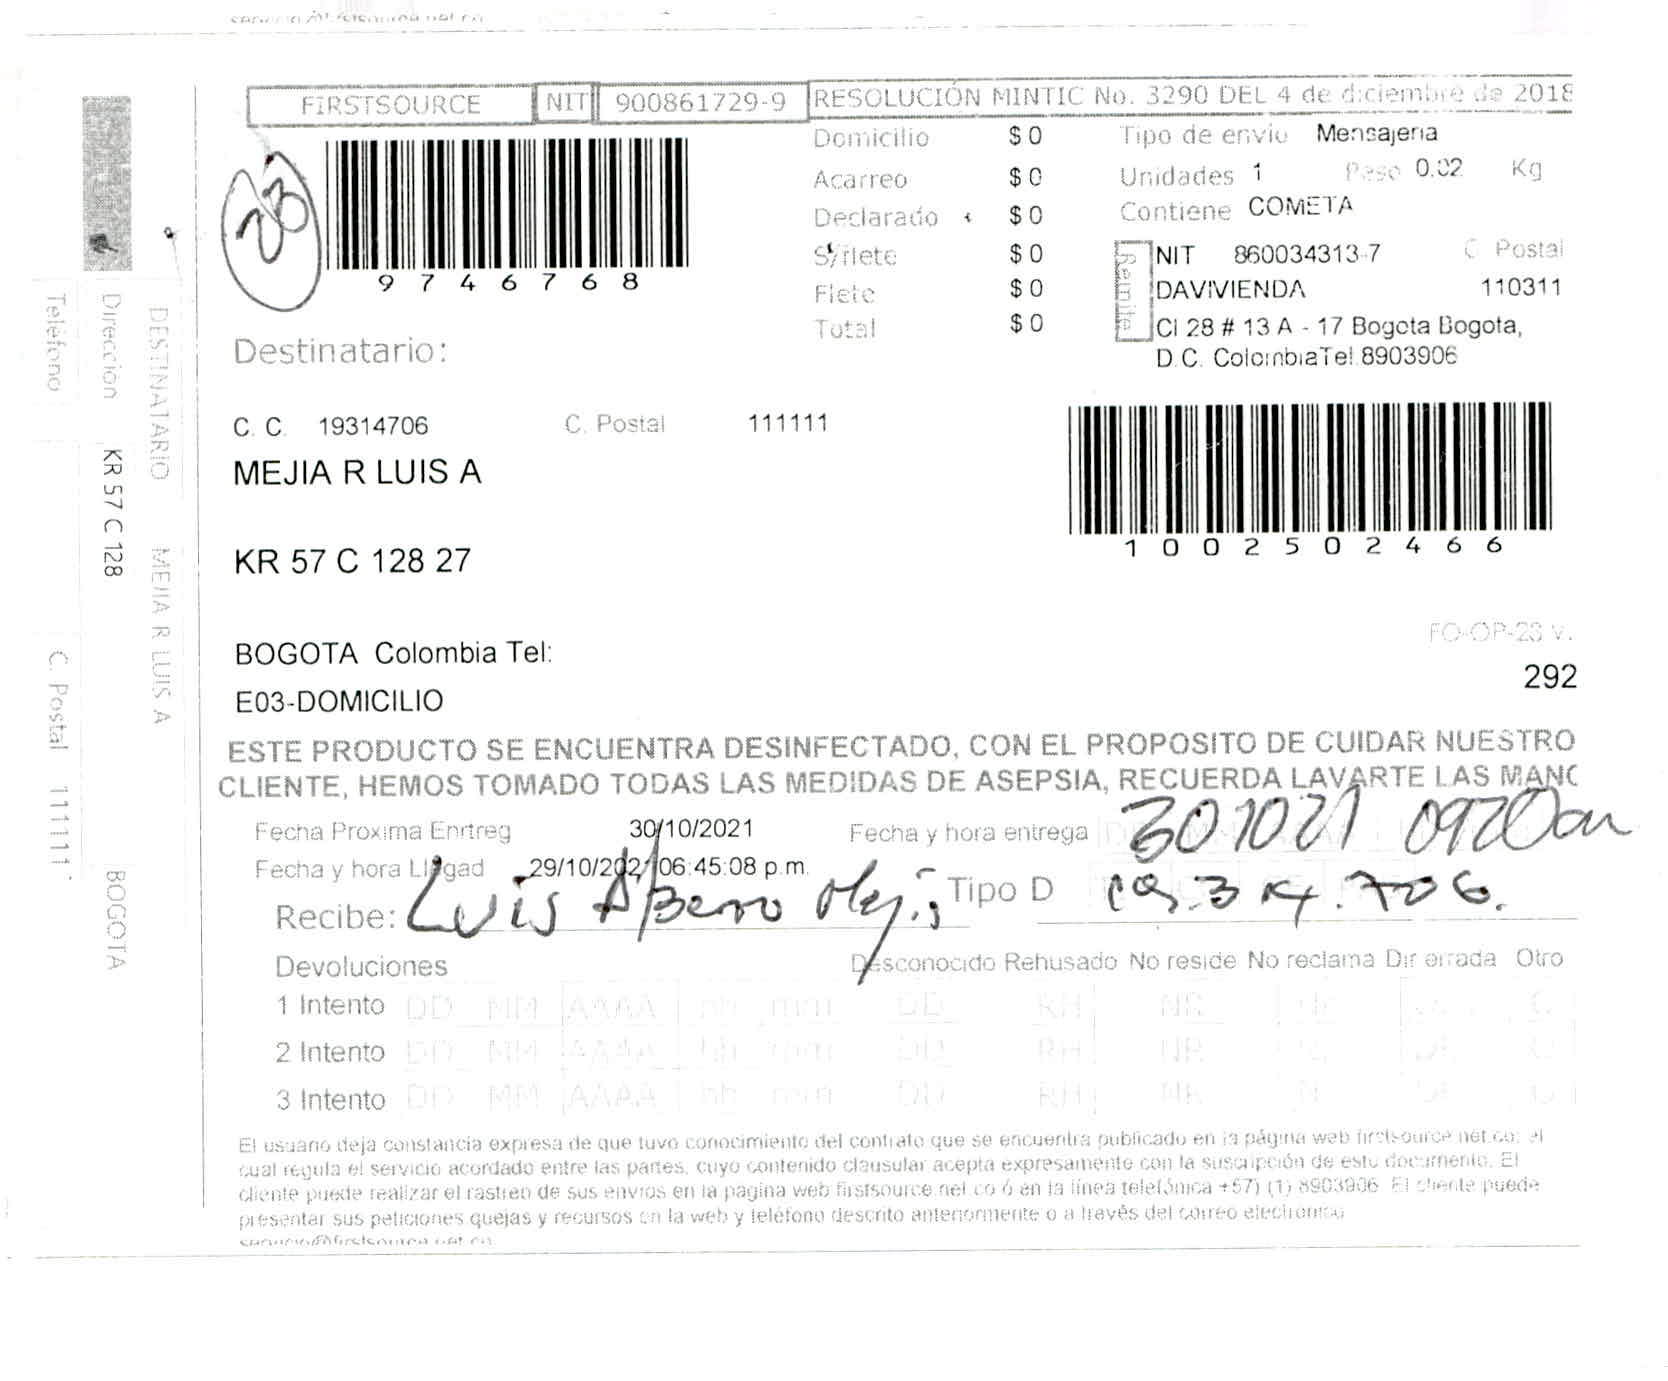 FIRSTSOURCE NIT 900861729-9 RESOLUCIÓN MINTIC No. 3290 DEL 4 de diciembre de 2018
23
9746768
Domicilio $ 0
Acarreo $ 0
Declarado $ 0
S/flete $ 0
Flete $ 0
Total $ 0
Tipo de envio Mensajeria
Unidades 1 Peso 0.02 Kg
Contiene COMETA
Remite
NIT 860034313-7 C Postal
DAVIVIENDA 110311
Cl 28 # 13 A - 17 Bogota Bogota,
D.C. ColombiaTel 8903906
Destinatario:
C. C. 19314706 C. Postal 111111
MEJIA R LUIS A
KR 57 C 128 27
1002502466
BOGOTA Colombia Tel:
E03-DOMICILIO
FO-OP-28 V.
292
ESTE PRODUCTO SE ENCUENTRA DESINFECTADO, CON EL PROPOSITO DE CUIDAR NUESTRO
CLIENTE, HEMOS TOMADO TODAS LAS MEDIDAS DE ASEPSIA, RECUERDA LAVARTE LAS MANO
Fecha Proxima Enrtreg 30/10/2021 Fecha y hora entrega 301021 0920am
Fecha y hora Llegad 29/10/2021 06:45:08 p.m.
Recibe: Luis Alberto Mejia Tipo D 19.314.706.
Devoluciones Desconocido Rehusado No reside No reclama Dir errada Otro
1 Intento DD MM AAAA hh mm DD RH NR
2 Intento DD MM AAAA hh mm DD RH NR
3 Intento DD MM AAAA hh mm DD RH NR
El usuario deja constancia expresa de que tuvo conocimiento del contrato que se encuentra publicado en la página web firstsource.net.co; el
cual regula el servicio acordado entre las partes, cuyo contenido clausular acepta expresamente con la suscripción de este documento. El
cliente puede realizar el rastreo de sus envios en la pagina web firstsource.net.co ó en la línea telefónica +57) (1) 8903906 El cliente puede
presentar sus peticiones quejas y recursos en la web y teléfono descrito anteriormente o a través del correo electronico
servicio@firstsource.net.co
DESTINATARIO MEJIA R LUIS A
Direccion KR 57 C 128 BOGOTA
Teléfono C. Postal 111111